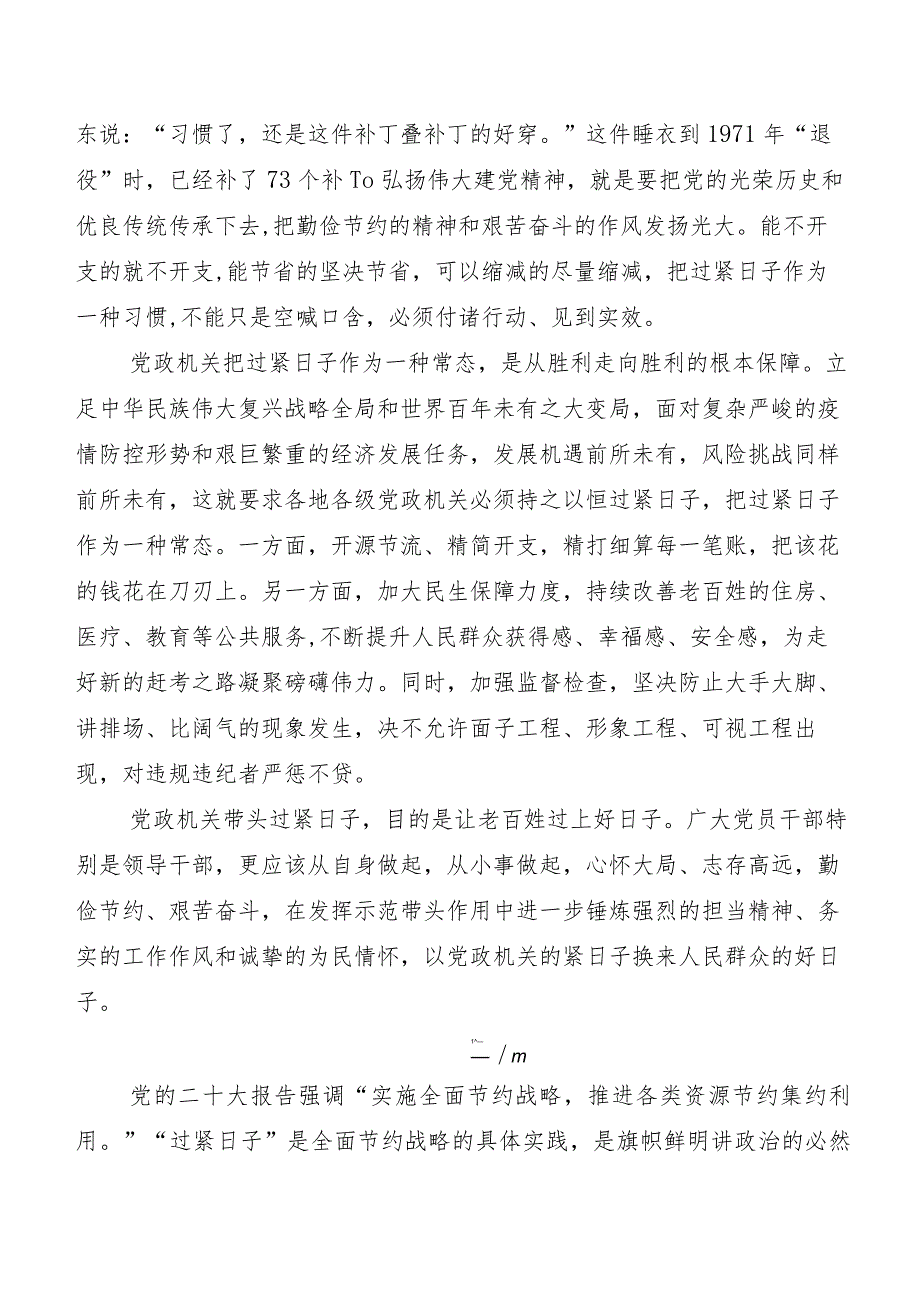 东说：“习惯了，还是这件补丁叠补丁的好穿。”这件睡衣到 1971 年“退
役”时，已经补了 73 个补 To 弘扬伟大建党精神，就是要把党的光荣历史和
优良传统传承下去,把勤俭节约的精神和艰苦奋斗的作风发扬光大。能不开
支的就不开支,能节省的坚决节省，可以缩减的尽量缩减，把过紧日子作为
一种习惯,不能只是空喊口含，必须付诸行动、见到实效。
党政机关把过紧日子作为一种常态，是从胜利走向胜利的根本保障。立
足中华民族伟大复兴战略全局和世界百年未有之大变局，面对复杂严峻的疫
情防控形势和艰巨繁重的经济发展任务，发展机遇前所未有，风险挑战同样
前所未有，这就要求各地各级党政机关必须持之以恒过紧日子，把过紧日子
作为一种常态。一方面，开源节流、精简开支，精打细算每一笔账，把该花
的钱花在刀刃上。另一方面，加大民生保障力度，持续改善老百姓的住房、
医疗、教育等公共服务,不断提升人民群众获得感、幸福感、安全感，为走
好新的赶考之路凝聚磅礴伟力。同时，加强监督检查，坚决防止大手大脚、
讲排场、比阔气的现象发生，决不允许面子工程、形象工程、可视工程出
现，对违规违纪者严惩不贷。
党政机关带头过紧日子，目的是让老百姓过上好日子。广大党员干部特
别是领导干部，更应该从自身做起，从小事做起，心怀大局、志存高远，勤
俭节约、艰苦奋斗，在发挥示范带头作用中进一步锤炼强烈的担当精神、务
实的工作作风和诚挚的为民情怀，以党政机关的紧日子换来人民群众的好日
子。
/m
党的二十大报告强调“实施全面节约战略，推进各类资源节约集约利
用。”“过紧日子”是全面节约战略的具体实践，是旗帜鲜明讲政治的必然